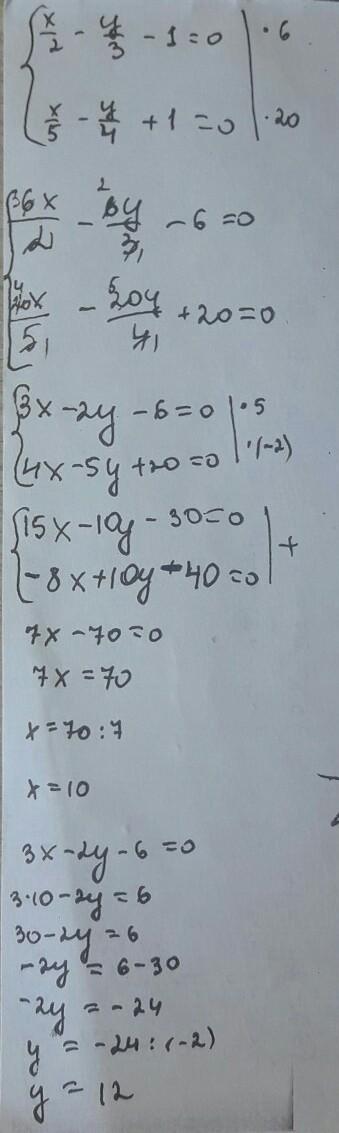 x/2 - y/3 - 1 = 0 | · 6
x/5 - y/4 + 1 = 0 | · 20
6x/2 - 6y/3 - 6 = 0
20x/5 - 20y/4 + 20 = 0
3x - 2y - 6 = 0 | · 5
4x - 5y + 20 = 0 | · (-2)
15x - 10y - 30 = 0 | +
-8x + 10y - 40 = 0
7x - 70 = 0
7x = 70
x = 70 : 7
x = 10
3x - 2y - 6 = 0
3·10 - 2y = 6
30 - 2y = 6
-2y = 6 - 30
-2y = -24
y = -24 : (-2)
y = 12